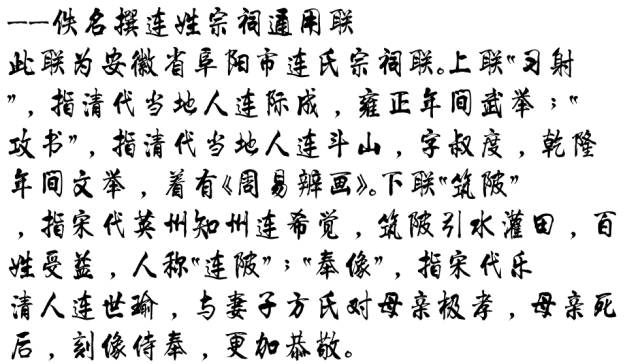 ——佚名撰连姓宗祠通用联
此联为安徽省阜阳市连氏宗祠联。上联“习射
”，指清代当地人连际成，雍正年间武举；“
攻书”，指清代当地人连斗山，字叔度，乾隆
年间文举，着有《周易辨画》。下联“筑陂”
，指宋代英州知州连希觉，筑陂引水灌田，百
姓受益，人称“连陂”；“奉像”，指宋代乐
清人连世瑜，与妻子方氏对母亲极孝，母亲死
后，刻像侍奉，更加恭敬。